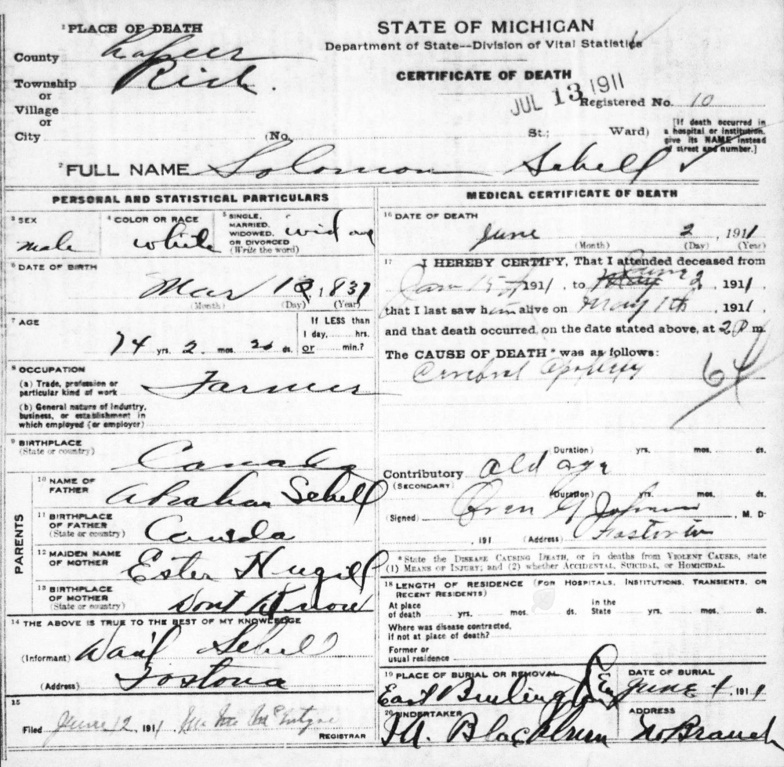 1 PLACE OF DEATH
County Lapeer
Township Rich.
or
Village
or
City (No. St.; Ward)
STATE OF MICHIGAN
Department of State—Division of Vital Statistics
CERTIFICATE OF DEATH
JUL 13 1911
Registered No. 10
[If death occurred in a hospital or institution, give its NAME instead of street and number.]
2 FULL NAME Solomon Sebell
PERSONAL AND STATISTICAL PARTICULARS
3 SEX male
4 COLOR OR RACE white
5 SINGLE, MARRIED, WIDOWED, OR DIVORCED (Write the word)
6 DATE OF BIRTH
Mar 12, 1837
(Month) (Day) (Year)
7 AGE
If LESS than 1 day, hrs. or min.?
74 yrs. 2 mos. 20 ds.
8 OCCUPATION
(a) Trade, profession or particular kind of work Farmer
(b) General nature of industry, business, or establishment in which employed (or employer)
9 BIRTHPLACE
(State or country) Canada
PARENTS
10 NAME OF FATHER Abraham Sebell
11 BIRTHPLACE OF FATHER (State or country) Canada
12 MAIDEN NAME OF MOTHER Ester Hugill
13 BIRTHPLACE OF MOTHER (State or country) Dont Know
14 THE ABOVE IS TRUE TO THE BEST OF MY KNOWLEDGE
(Informant) Dan'l Sebell
(Address) Fostoria
15
Filed June 12, 1911
REGISTRAR
MEDICAL CERTIFICATE OF DEATH
16 DATE OF DEATH
June 2, 1911
(Month) (Day) (Year)
17 I HEREBY CERTIFY, That I attended deceased from
Jan 15 1911, to June 2 1911
that I last saw him alive on May 1th, 1911.
and that death occurred, on the date stated above, at 2 P m.
The CAUSE OF DEATH* was as follows:
Cerebral apoplexy
64
(Duration) yrs. mos. ds.
Contributory old age
(SECONDARY)
(Duration) yrs. mos. ds.
(Signed) Oren G Johnson, M. D.
191 (Address) Fostoria
*State the DISEASE CAUSING DEATH, or in deaths from VIOLENT CAUSES, state (1) MEANS OF INJURY; and (2) whether ACCIDENTAL, SUICIDAL, or HOMICIDAL.
18 LENGTH OF RESIDENCE (FOR HOSPITALS, INSTITUTIONS, TRANSIENTS, OR RECENT RESIDENTS)
At place of death yrs. mos. ds. In the State yrs. mos. ds.
Where was disease contracted, if not at place of death?
Former or usual residence
19 PLACE OF BURIAL OR REMOVAL
East Burlington Cem
DATE OF BURIAL
June 4, 1911
20 UNDERTAKER
Blackburn
ADDRESS
No Branch